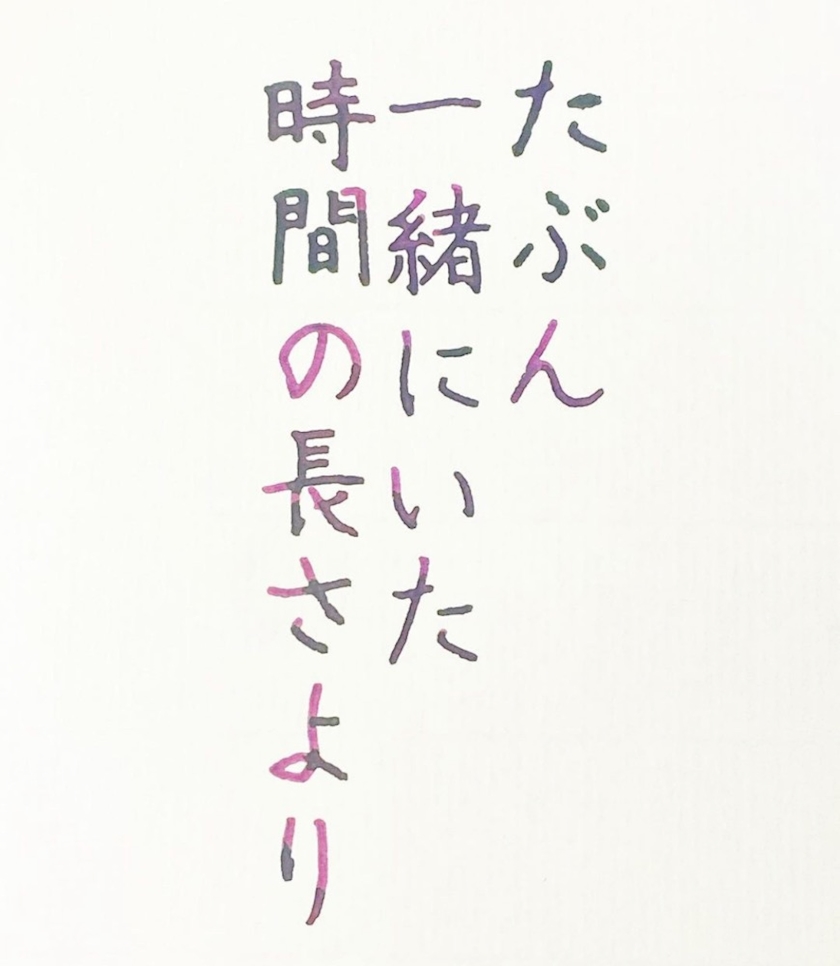 たぶん
一緒にいた
時間の長さより